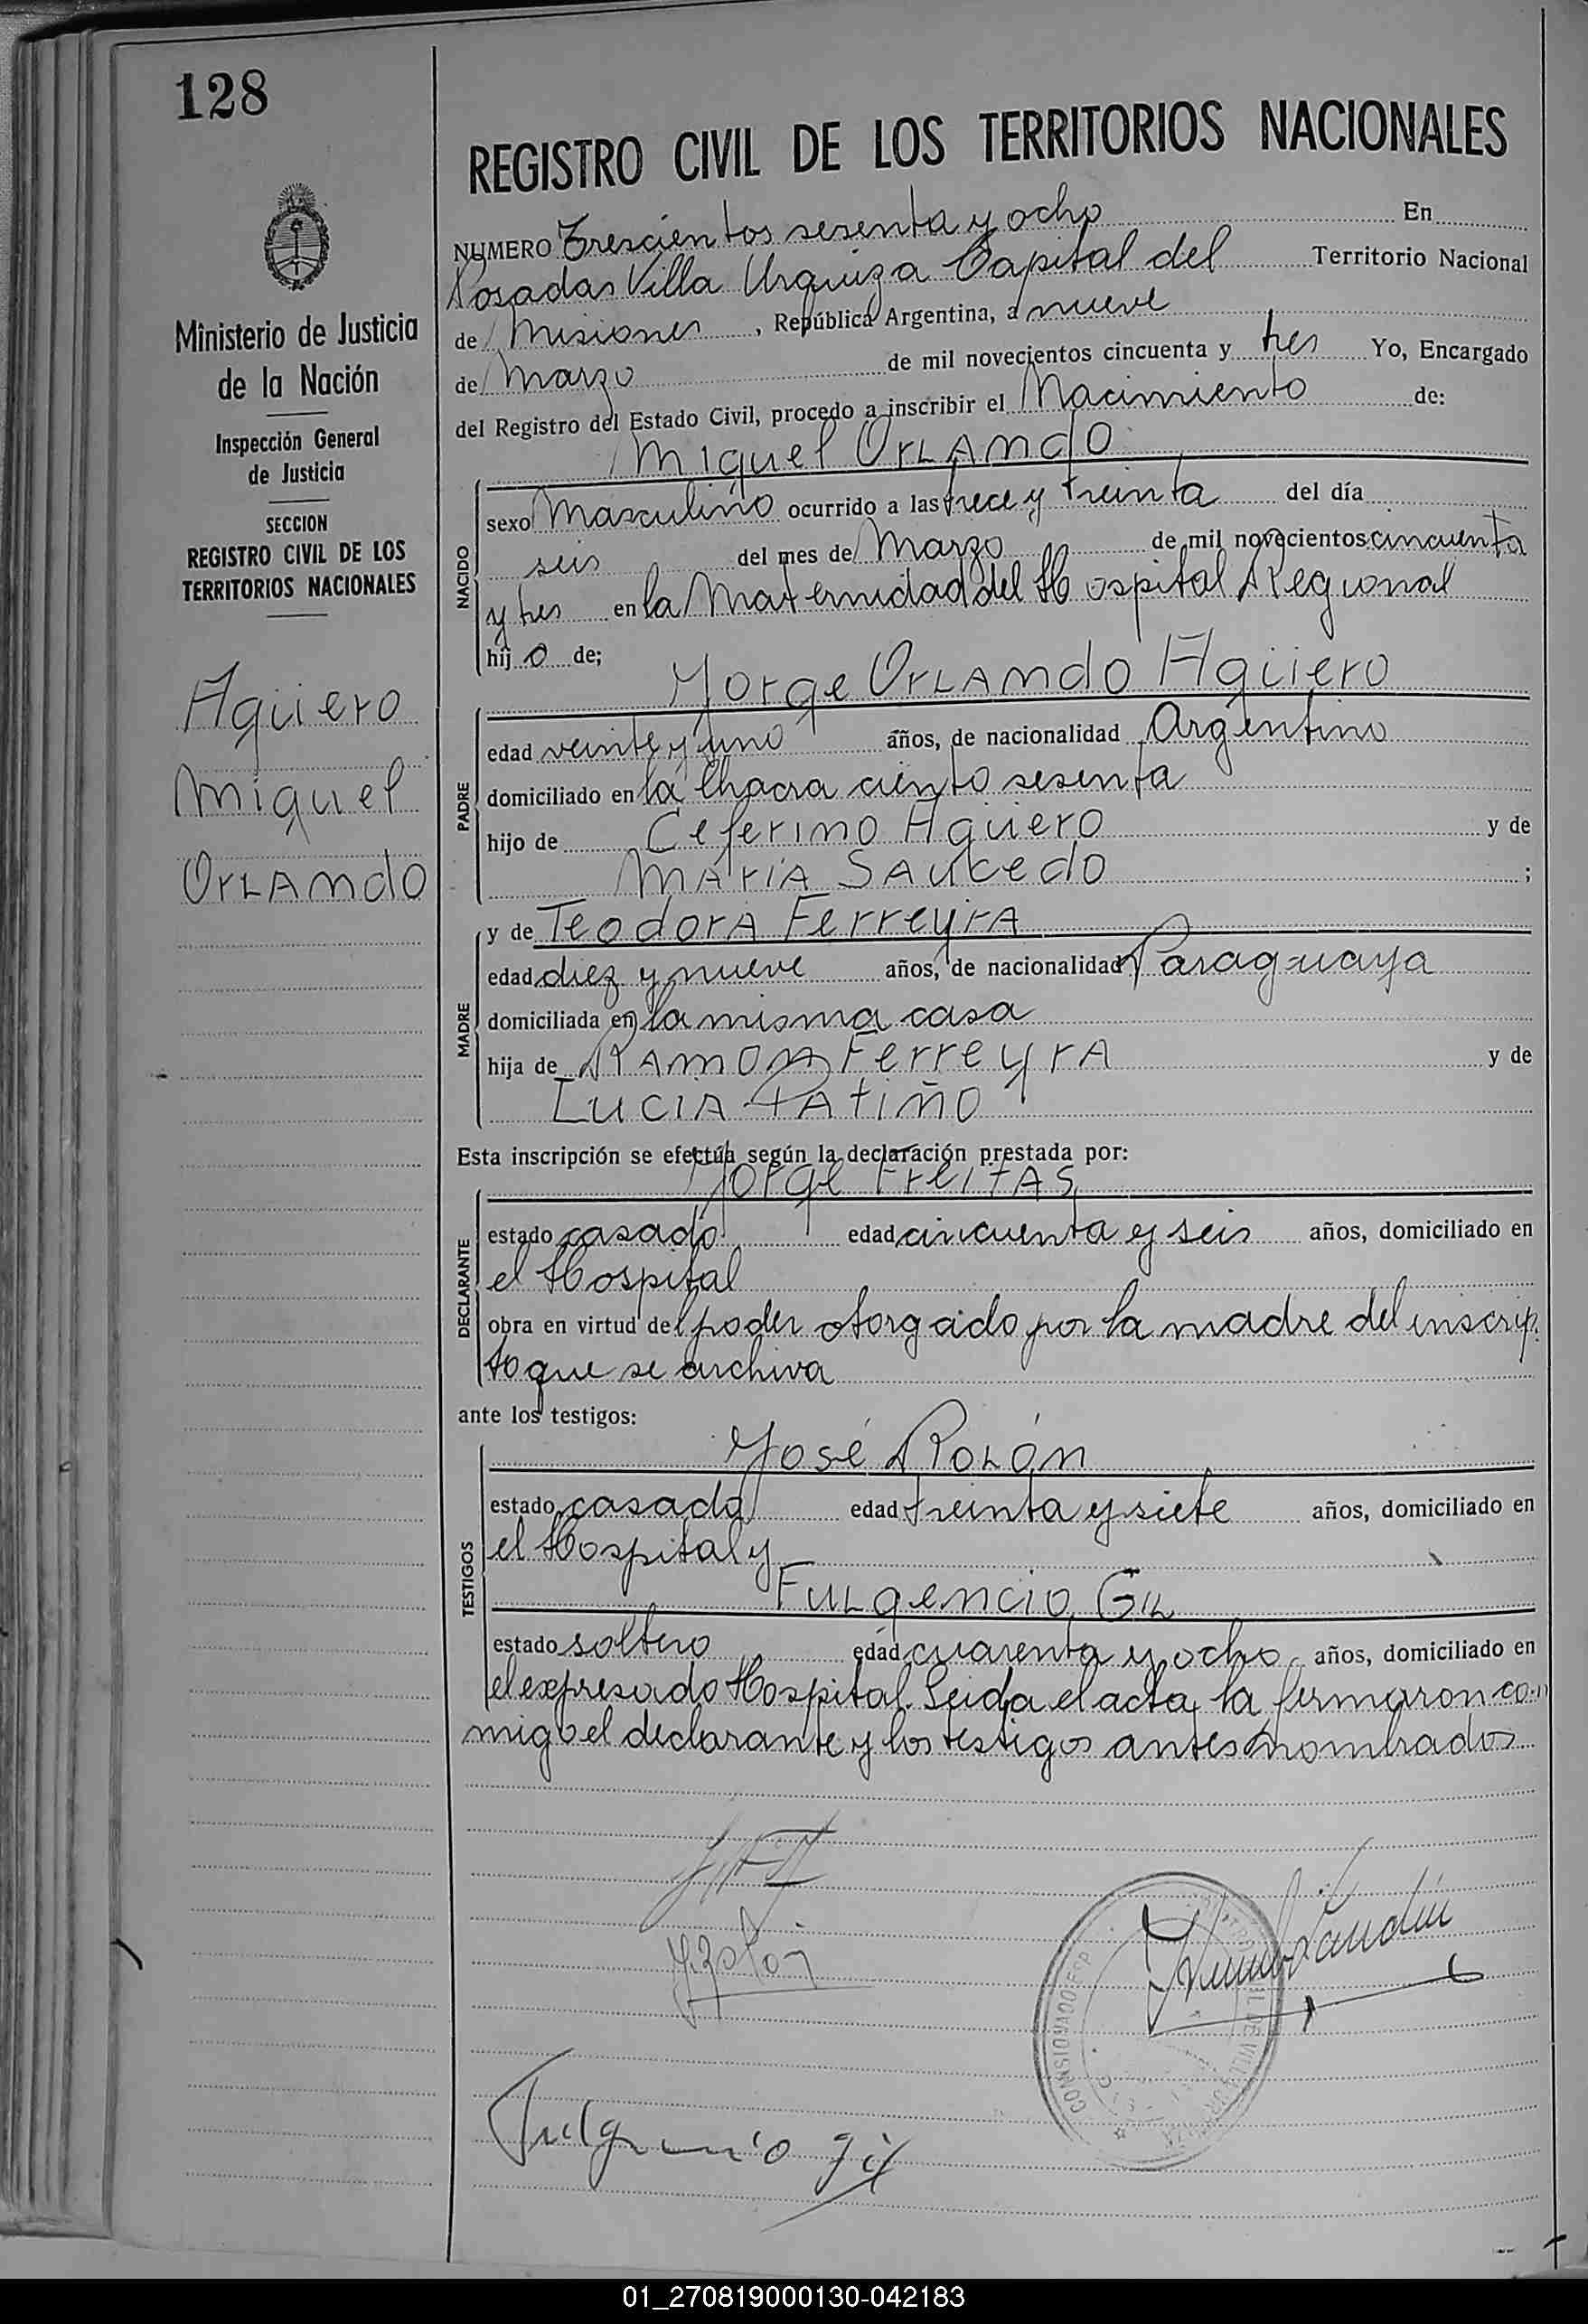 128
REGISTRO CIVIL DE LOS TERRITORIOS NACIONALES
Ministerio de Justicia
de la Nación
Inspección General
de Justicia
SECCION
REGISTRO CIVIL DE LOS
TERRITORIOS NACIONALES
Agüero
Miguel
Orlando
NUMERO Trescientos sesenta y ocho En
Posadas Villa Urquiza Capital del Territorio Nacional
de Misiones, República Argentina, a nueve
de Marzo de mil novecientos cincuenta y tres Yo, Encargado
del Registro del Estado Civil, procedo a inscribir el Nacimiento de:
Miguel Orlando
NACIDO
sexo Masculino ocurrido a las trece y treinta del día
seis del mes de Marzo de mil novecientos cincuenta
y tres en la Maternidad del Hospital Regional
hijo de;
Jorge Orlando Agüero
PADRE
edad veinte y uno años, de nacionalidad Argentino
domiciliado en la Chacra ciento sesenta
hijo de Ceferino Agüero y de
María Saucedo ;
y de Teodora Ferreyra
MADRE
edad diez y nueve años, de nacionalidad Paraguaya
domiciliada en la misma casa
hija de Ramon Ferreyra y de
Lucia Patiño
Esta inscripción se efectúa según la declaración prestada por:
Jorge Freitas
DECLARANTE
estado casado edad cincuenta y seis años, domiciliado en
el Hospital
obra en virtud del poder otorgado por la madre del inscrip
to que se archiva
ante los testigos:
José Rolón
TESTIGOS
estado casado edad treinta y siete años, domiciliado en
el Hospital y
Fulgencio Gil
estado soltero edad cuarenta y ocho años, domiciliado en
el expresado Hospital. Leida el acta la firmaron con
migo el declarante y los testigos antes nombrados
J. Rolon
Fulgencio Gil
01_270819000130-042183